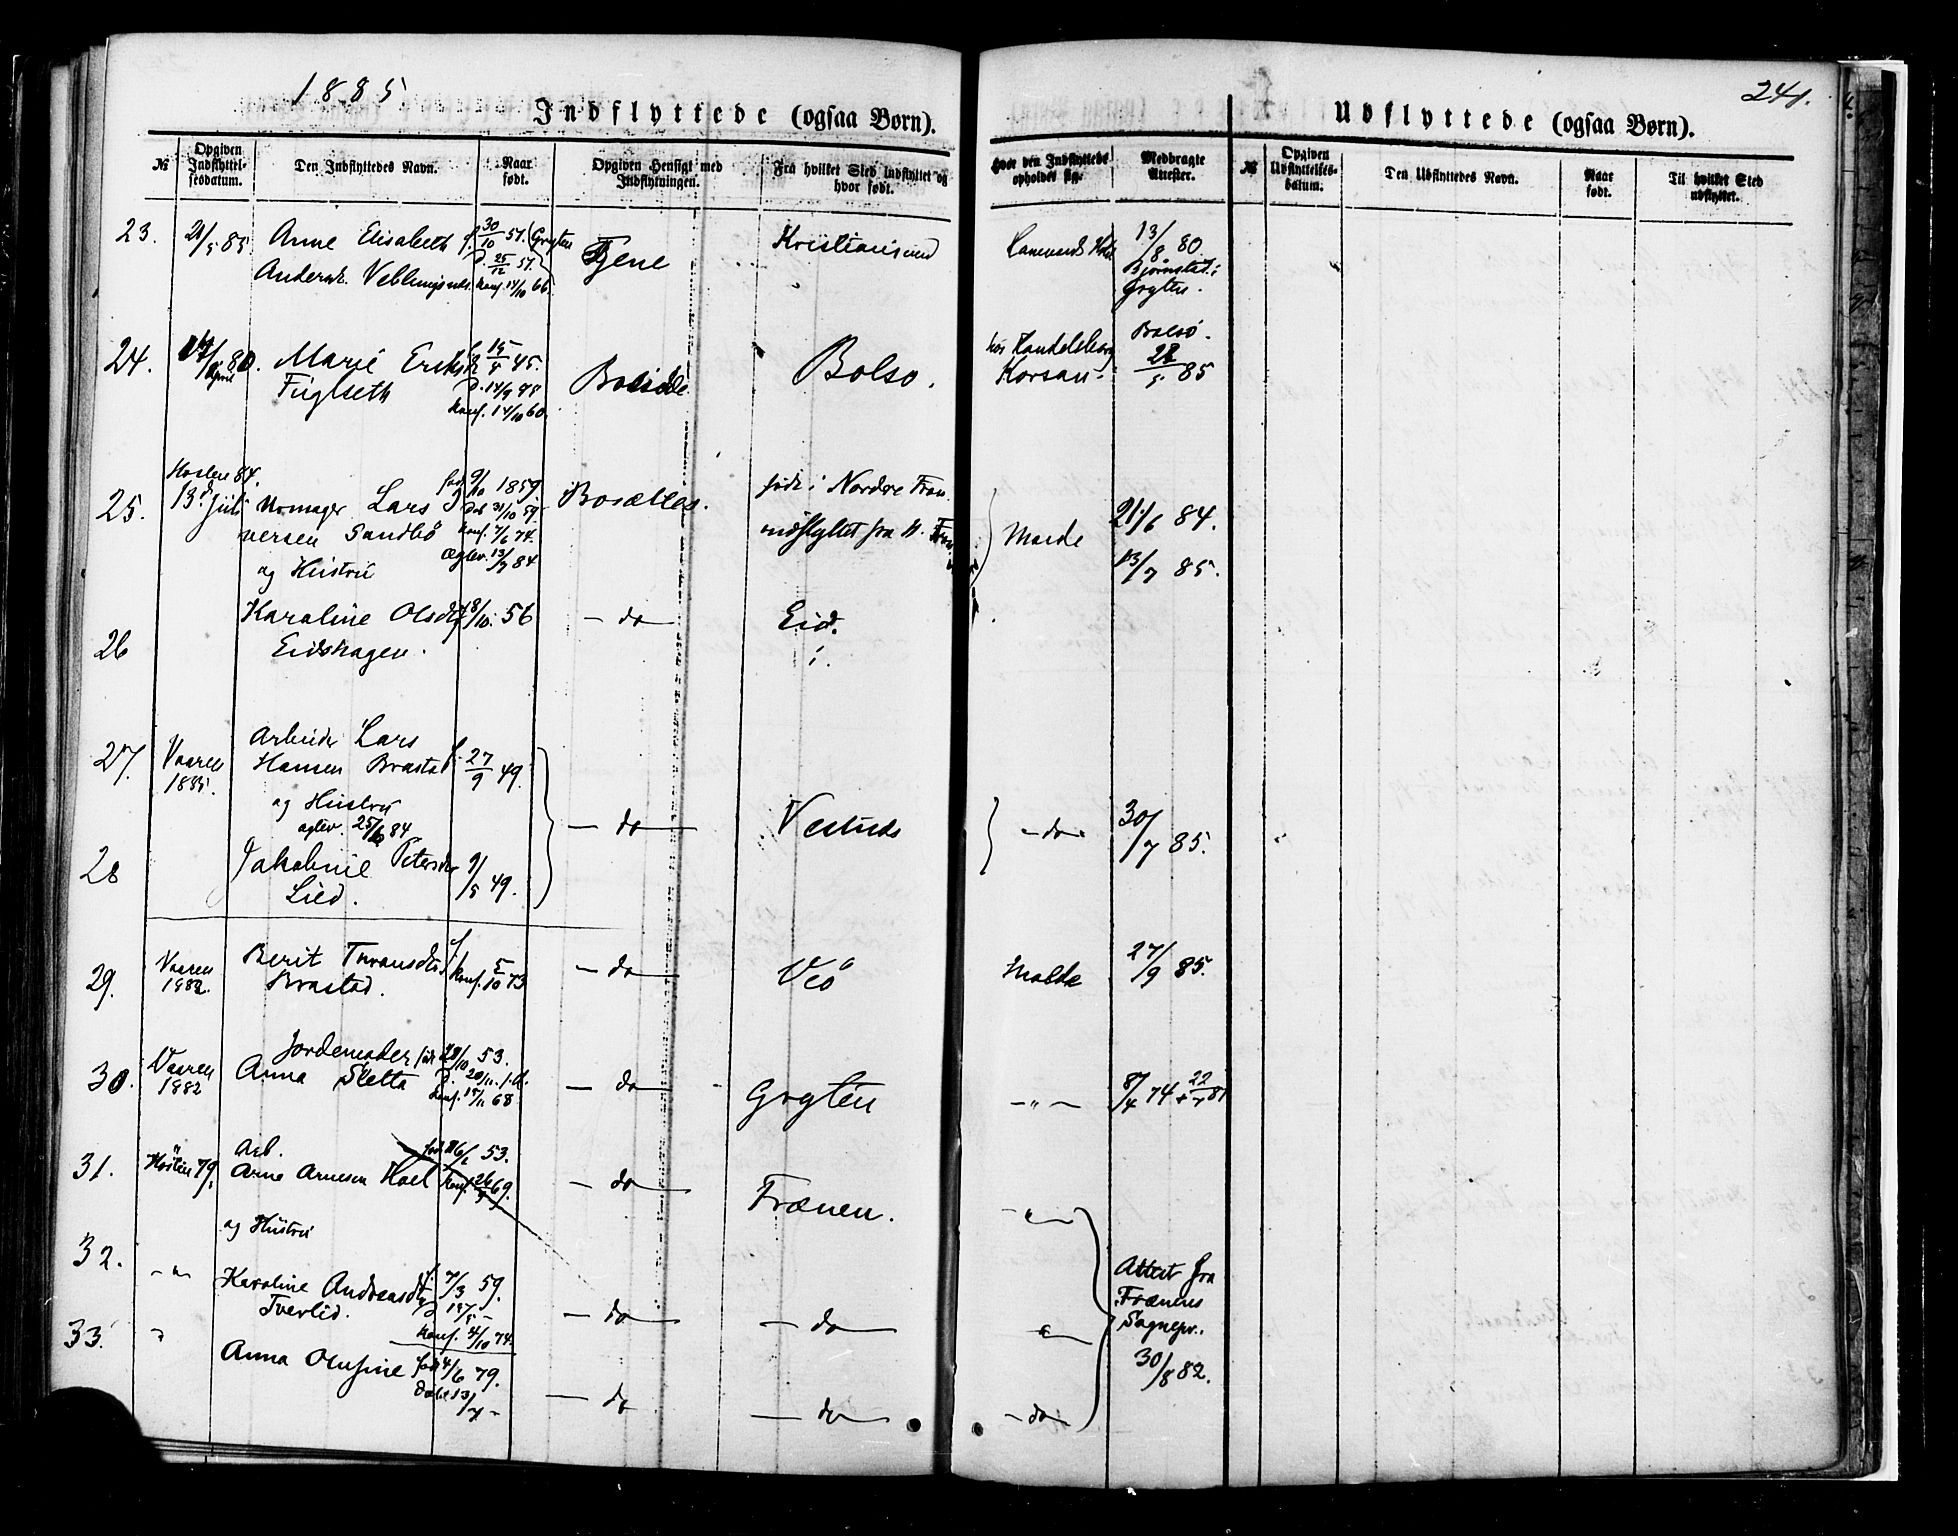 1885
241.
Indflyttede (ogsaa Børn).
Udflyttede (ogsaa Børn).
№
Opgiven Indflyttelsesdatum.
Den Indflyttedes Navn.
Naar født.
Opgiven Hensigt med Indflytningen.
Fra hvilket Sted indflyttet og hvor født.
Hvor den Indflyttede opholder sig.
Medbragte Attester.
№
Opgiven Udflyttelsesdatum.
Den Udflyttedes Navn.
Naar født.
Til hvilket Sted udflyttet.
23. 21/5 85. Anne Elisabeth f. 30/10 51. (Grytten Tjene Kristiansund 13/8 80
D. 25/12 51.
Konf. 14/10 66. Bjørnstad i
Grytten.
24. April 80. Marie f. 15/8 45. Bolsø. Bolsø.
Fuglseth D. 14/9 48 Korsan 28/5 85
Konf. 14/10 60.
Høsten 84.
25. 13de Juli Urmager Lars I- fød 9/10 1859 Bosættes. født i Nordre Fræn.
versen Sandbø Døb 31/10 59. indflyttet fra N. Molde 21/6 84.
Konf. 7/6 74.
og Hustru Ægtev. 13/7 84 13/7 85.
26 Karoline Olsdtr f. 8/10 56 — do — Eid.
Eidshagen.
27. Vaaren 1885. Arbeider Lars
Hansen Brastad f. 27/9 49.
og Hustru
ægtev. 25/10 84 — do — Vestnes — do — 30/7 85.
28 Jakobine Petersdtr 9/5 49.
Lied.
29. Vaaren 1882. Berit f. — do — Veø Molde 27/9 85.
Brastad. Konf. 5/10 73
30. Vaaren 1882 Jordemoder født 28/10 53.
Anna Sletta D. 20/11 — do — Grytten — „ — 8/4 74 + 22/7 81
Konf. 15/11 68
31. Høsten 79. Arb. fød 16/1 53.
Arne Arnesen Hoel Konf. 26/9 69. — do — Frænen. — „ —
og Hustru
32. — „ — Karoline Andreasdtr f. 7/3 59. — do — — do — — „ — Attest fra
Tverlid. Frænens
Konf. 4/10 74. Sognepr.
33. „ Anna Olufine fød 4/6 79. — do — — do — — do — 30/8 82.
Døbt 13/7 –